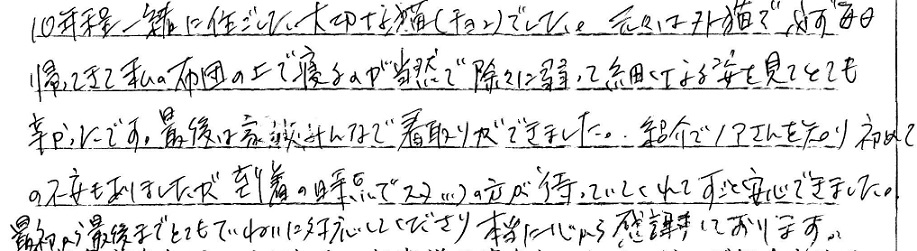 10年程一緒に生活した大切な猫(チョコ)でした。元々は外猫で必ず毎日
帰ってきて私の布団の上で寝るのが当然で除々に弱って細くなる姿を見てとても
辛かったです。最後は家族みんなで看取りができました。紹介でノアさんを知り初めて
の不安もありましたが到着の時点でスタッフの方が待っていてくれてすごく安心できました。
最初から最後までとてもていねいに対応してくださり本当に心から感謝しております。